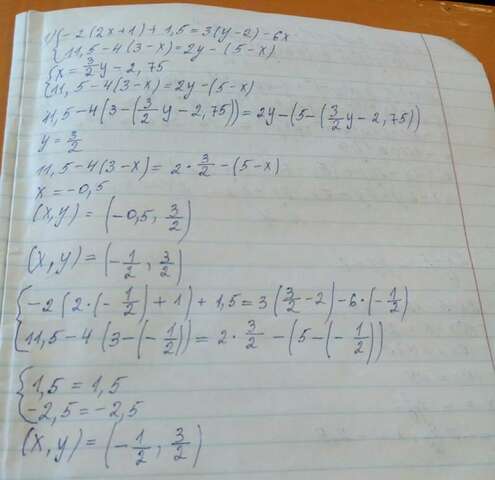 1) {-2(2x+1)+1,5=3(y-2)-6x
{11,5-4(3-x)=2y-(5-x)
{x=3/2y-2,75
{11,5-4(3-x)=2y-(5-x)
11,5-4(3-(3/2y-2,75))=2y-(5-(3/2y-2,75))
y=3/2
11,5-4(3-x)=2·3/2-(5-x)
x=-0,5
(x,y)=(-0,5, 3/2)
(x,y)=(-1/2, 3/2)
{-2(2·(-1/2)+1)+1,5=3(3/2-2)-6·(-1/2)
{11,5-4(3-(-1/2))=2·3/2-(5-(-1/2))
{1,5=1,5
{-2,5=-2,5
(x,y)=(-1/2, 3/2)